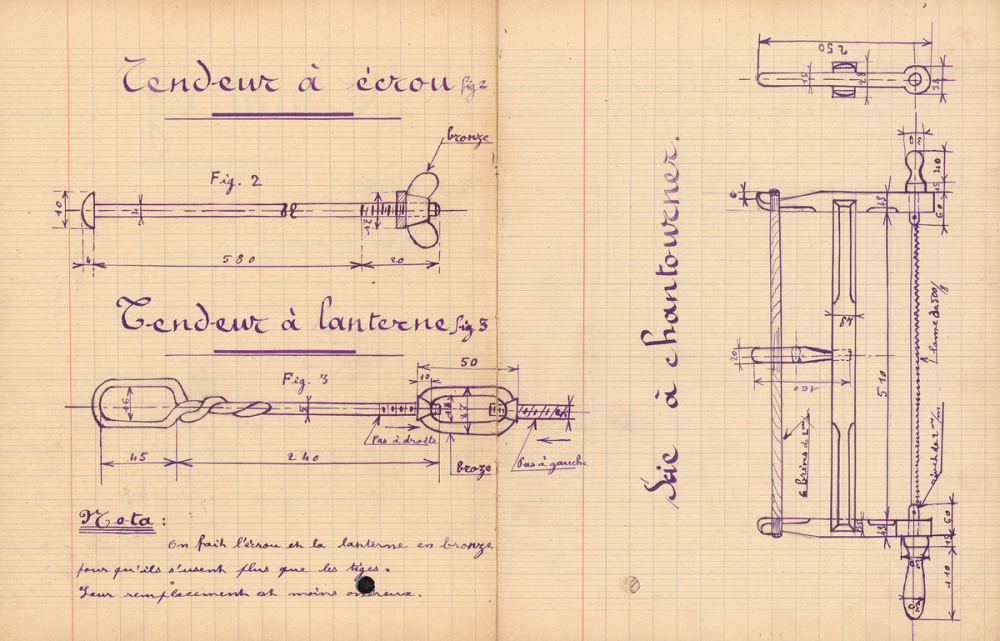 Tendeur à écrou fig 2
bronze
Fig. 2
10
4
12
4
580
20
Tendeur à lanterne fig 3
50
Fig. 3
10
16
5
37
Pas à droite
broze
Pas à gauche
45
240
Nota :
on fait l'écrou et la lanterne en bronze
pour qu'ils s'usent plus que les tiges.
Leur remplacement est moins onéreux.
Scie à chantourner.
250
15
28
34
6
45
40
15
60
lame de 500
20
160
510
6 brins de 2 m/m
rivet de 2 m/m
45
60
15
110